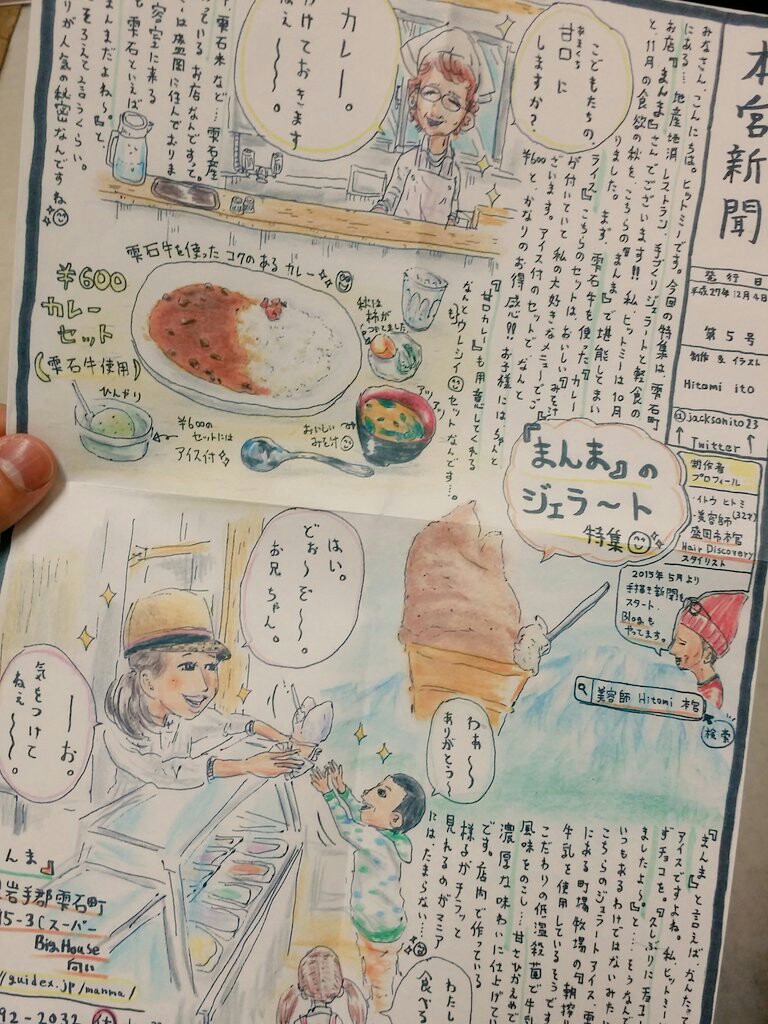 本宮新聞
発行日
平成27年12月4日
第5号
制作 & イラスト
Hitomi ito
@jacksonito23
Twitter
制作者
プロフィール
・イトウ ヒトミ
・美容師(32才)
盛岡市本宮
Hair Discovery
スタイリスト
2015年5月より
手描き新聞を
スタート
Blogも
やってます。
美容師 Hitomi 本宮
検索
みなさん、こんにちは。ヒットミーです。今回の特集は、雫石町
にある…地産地消レストラン、手づくりジェラートと軽食の
お店『まんま』さんでございます!!私、ヒットミーは10月
と、11月の食欲の秋を、こちらの『まんま』で堪能してまい
りました。まず、雫石牛を使った『カレー
ライス』こちらのセットは、おいしい『みそ汁』
が付いていて、私の大好きなメニューでご
ざいます。アイス付のセットで、なんと
¥600と、かなりのお得感!!お子様にはちゃんと
『甘口カレー』も用意してくれる
なんともウレシイセットなんです…。
こどもたちの、
甘口に
あまくち
しますか?
カレー。
けておきます
ねぇ〜〜。
雫石米など…雫石産
っているお店なんですって。
は盛岡に住んでおりま
容室に来る
も雫石といえば
まんまだよね〜』と、
そろえて言うくらい。
りが人気の秘密なんですね
雫石牛を使ったコクのあるカレー
¥600
カレー
セット
(雫石牛使用)
秋は
柿が
ついてました
ひんやり
¥600の
セットには
アイス付
おいしい
みそ汁
アツアツ
『まんま』の
ジェラ〜ト
特集
はい。
どぉ〜ぞ〜。
お兄ちゃん。
ーお。
気をつけて
ねぇ〜〜。
わぁ〜〜
ありがとっ〜
『まんま』と言えば、なんたって
アイスですよね。私、ヒットミー
ずチョコを。『久しぶりに
ましたよ〜。』と…そうなんで
いつもあるわけではないみた
こちらのジェラートアイス、雫
にある町場牧場の『朝搾
牛乳を使用しているそうです
こだわりの低温殺菌で牛
風味をのこし…甘さひかえめで
濃厚な味わいに仕上げてい
です。店内で作っている
様子がチラッと
見れるのがマニア
にはたまらない…。
わたし
食べる
んま』
岩手郡雫石町
15-3Cスーパー
Big House
向い
//guidex.jp/manma/
92-2032